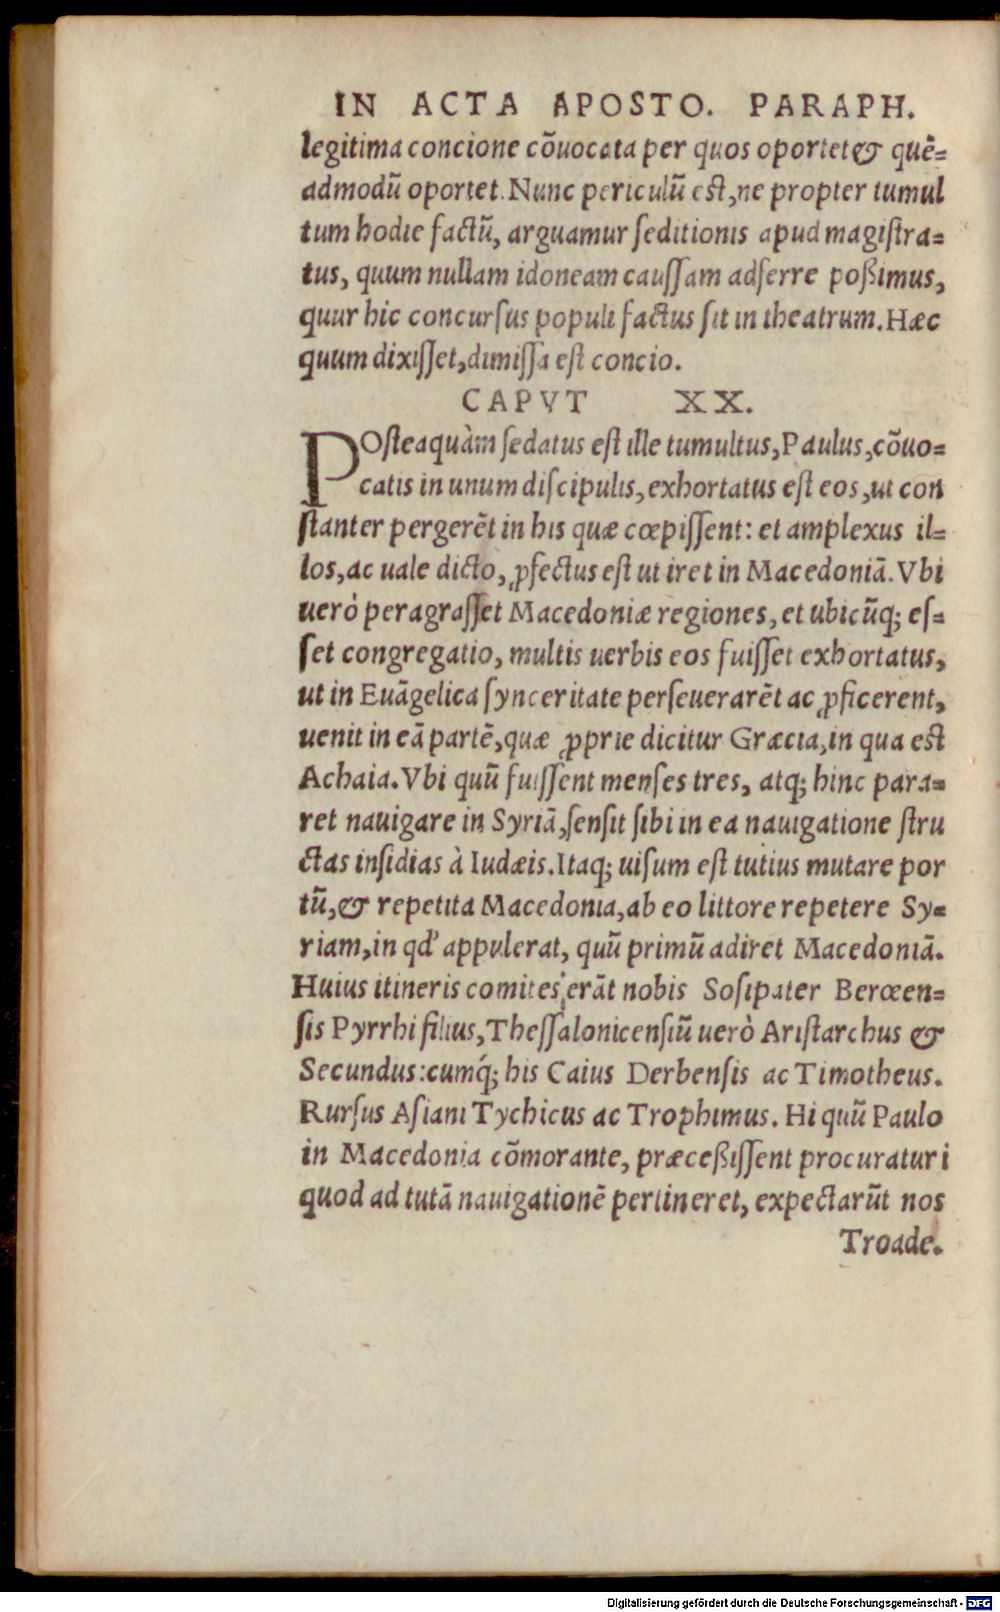 IN ACTA APOSTO. PARAPH.
legitima concione cõuocata per quos oportet & quẽ=
admodũ oportet. Nunc periculũ est, ne propter tumul
tum hodie factũ, arguamur ſeditionis apud magiſtra=
tus, quum nullam idoneam cauſſam adferre poßimus,
quur hic concurſus populi factus ſit in theatrum. Hæc
quum dixiſſet, dimiſſa eſt concio.
CAPVT XX.
POſteaquàm ſedatus eſt ille tumultus, Paulus, cõuo=
catis in unum diſcipulis, exhortatus eſt eos, ut con
ſtanter pergerẽt in his quæ cœpiſſent: et amplexus il=
los, ac uale dicto, ꝓfectus eſt ut iret in Macedoniã. Vbi
uerò peragraſſet Macedoniæ regiones, et ubicũq; eſ=
ſet congregatio, multis uerbis eos fuiſſet exhortatus,
ut in Euãgelica ſynceritate perſeuerarẽt ac ꝓficerent,
uenit in eã partẽ, quæ ꝓprie dicitur Græcia, in qua est
Achaia. Vbi quũ fuiſſent menſes tres, atq; hinc para=
ret nauigare in Syriã, ſenſit ſibi in ea nauigatione ſtru
ctas inſidias à Iudæis. Itaq; uiſum eſt tutius mutare por
tũ, & repetita Macedonia, ab eo littore repetere Sy=
riam, in qd' appulerat, quũ primũ adiret Macedoniã.
Huius itineris comites erãt nobis Soſipater Berœen=
ſis Pyrrhi filius, Theſſalonicenſiũ uerò Ariſtarchus &
Secundus: cumq́; his Caius Derbenſis ac Timotheus.
Rurſus Aſiani Tychicus ac Trophimus. Hi quũ Paulo
in Macedonia cõmorante, præceßiſſent procuraturi
quod ad tutã nauigationẽ pertineret, expectarũt nos
Troade.
Digitalisierung gefördert durch die Deutsche Forschungsgemeinschaft - DFG